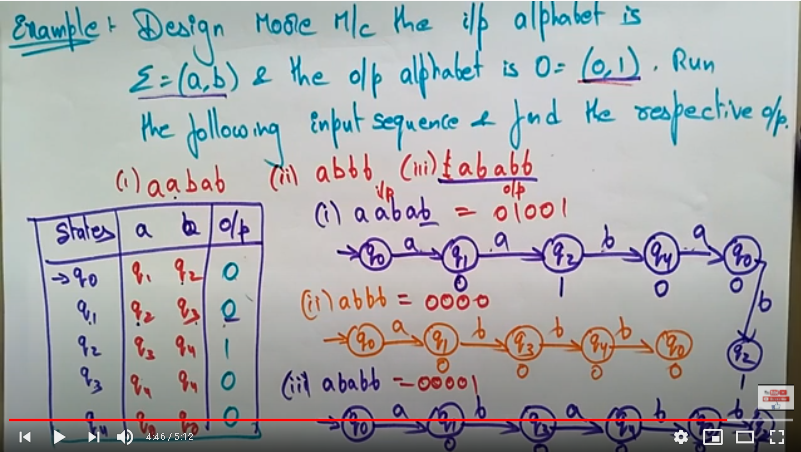 Example: Design Moore M/c the i/p alphabet is
Σ=(a,b) & the o/p alphabet is O=(0,1). Run
the following input sequence & find the respective o/p.
(i) aabab (ii) abbb (iii) ababb
i/p o/p
(i) aabab = 01001
States a b o/p
→q0 q1 q2 0
q1 q2 q3 0
q2 q3 q4 1
q3 q4 q4 0
q4 q0 q0 0
q0 a q1 a q2 b q4 a q0
0 1 0 0
b
q2
1
(ii) abbb = 0000
q0 a q1 b q3 b q4 b q0
0 0 0 0
(iii) ababb = 00001
q0 a q1 b q3 a q4 b b
0 0 0
4:46 / 5:12